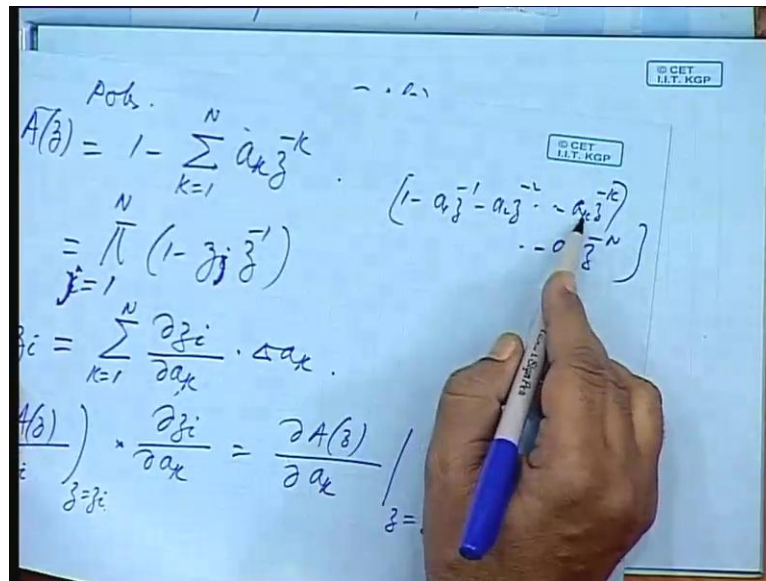 © CET
I.I.T. KGP
Pols.
A(z) = 1 - Σ_{k=1}^{N} a_k z^{-k}
© CET
I.I.T. KGP
(1 - a_1 z^{-1} - a_2 z^{-2} .. - a_k z^{-k})
= Π_{j=1}^{N} (1 - z_j z^{-1})
.. - z^{-N} ]
z_i = Σ_{k=1}^{N} ∂z_i/∂a_k · Δa_k .
A(z)/ i )_{z=z_i} * ∂z_i/∂a_k = ∂A(z)/∂a_k |_{z=